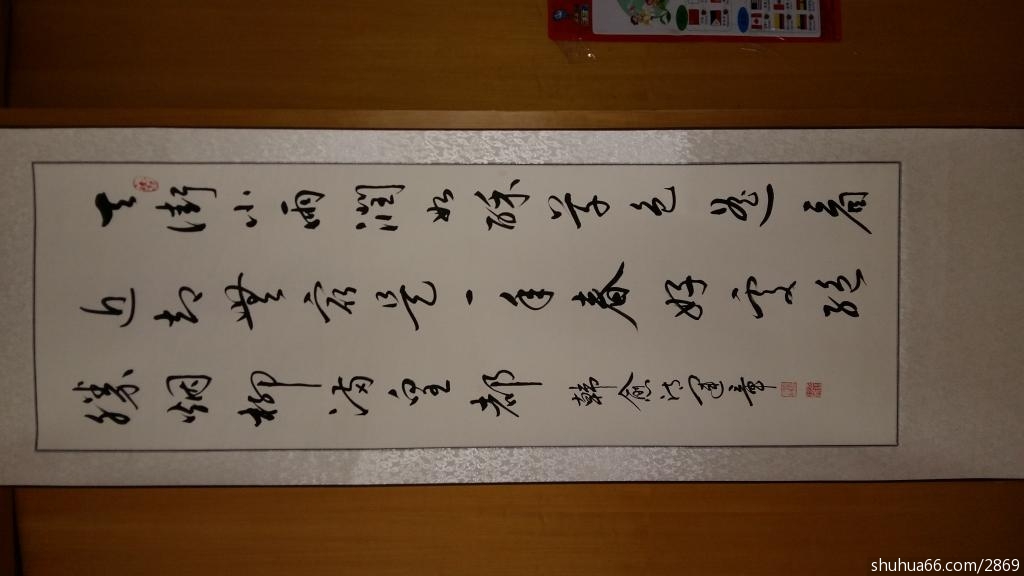 天街小雨潤如酥草色遥看
近却無最是一年春好處絕
勝烟柳滿皇都
韓愈詩 章
shuhua66.com/2869